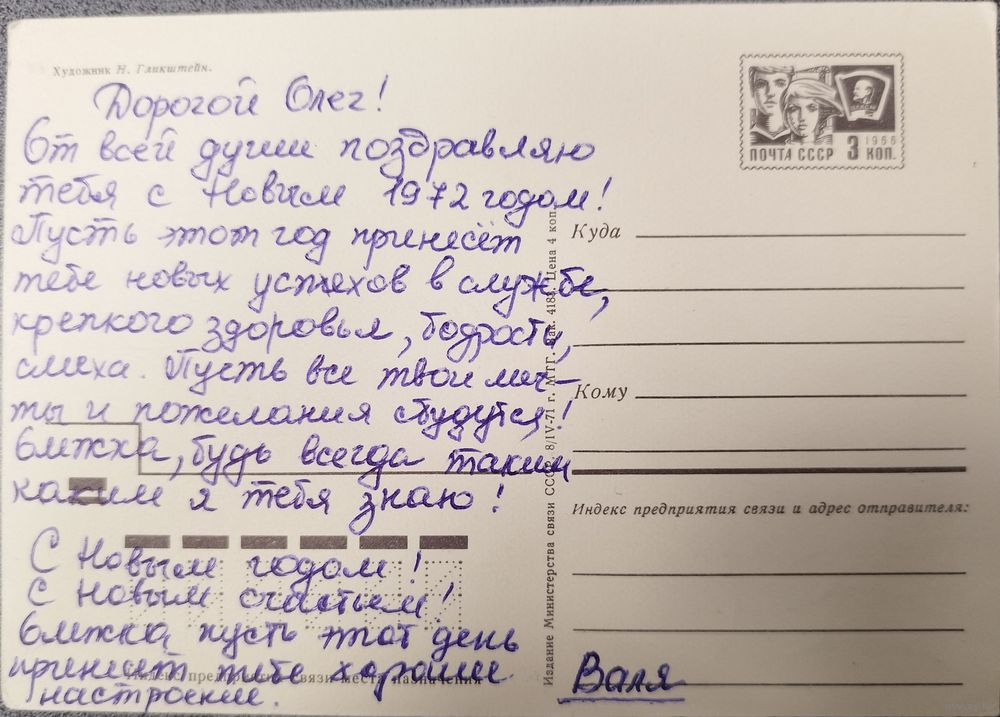 Художник Н. Гликштейн.
Дорогой Олег!
От всей души поздравляю
тебя с Новым 1972 годом!
Пусть этот год принесёт
тебе новых успехов в службе,
крепкого здоровья, бодрости,
смеха. Пусть все твои меч-
ты и пожелания сбудутся!
будь всегда таким
каким я тебя знаю!
С Новым годом!
С новым счастьем!
пусть этот день
принесет тебе хорошее
настроение.
Индекс предприятия связи места назначения
Издание Министерства связи СССР. 8/IV-71 г. МТГ. Зак. 4188. Цена 4 коп.
ПОЧТА СССР 3 КОП.
1966
Куда
Кому
Индекс предприятия связи и адрес отправителя:
Валя